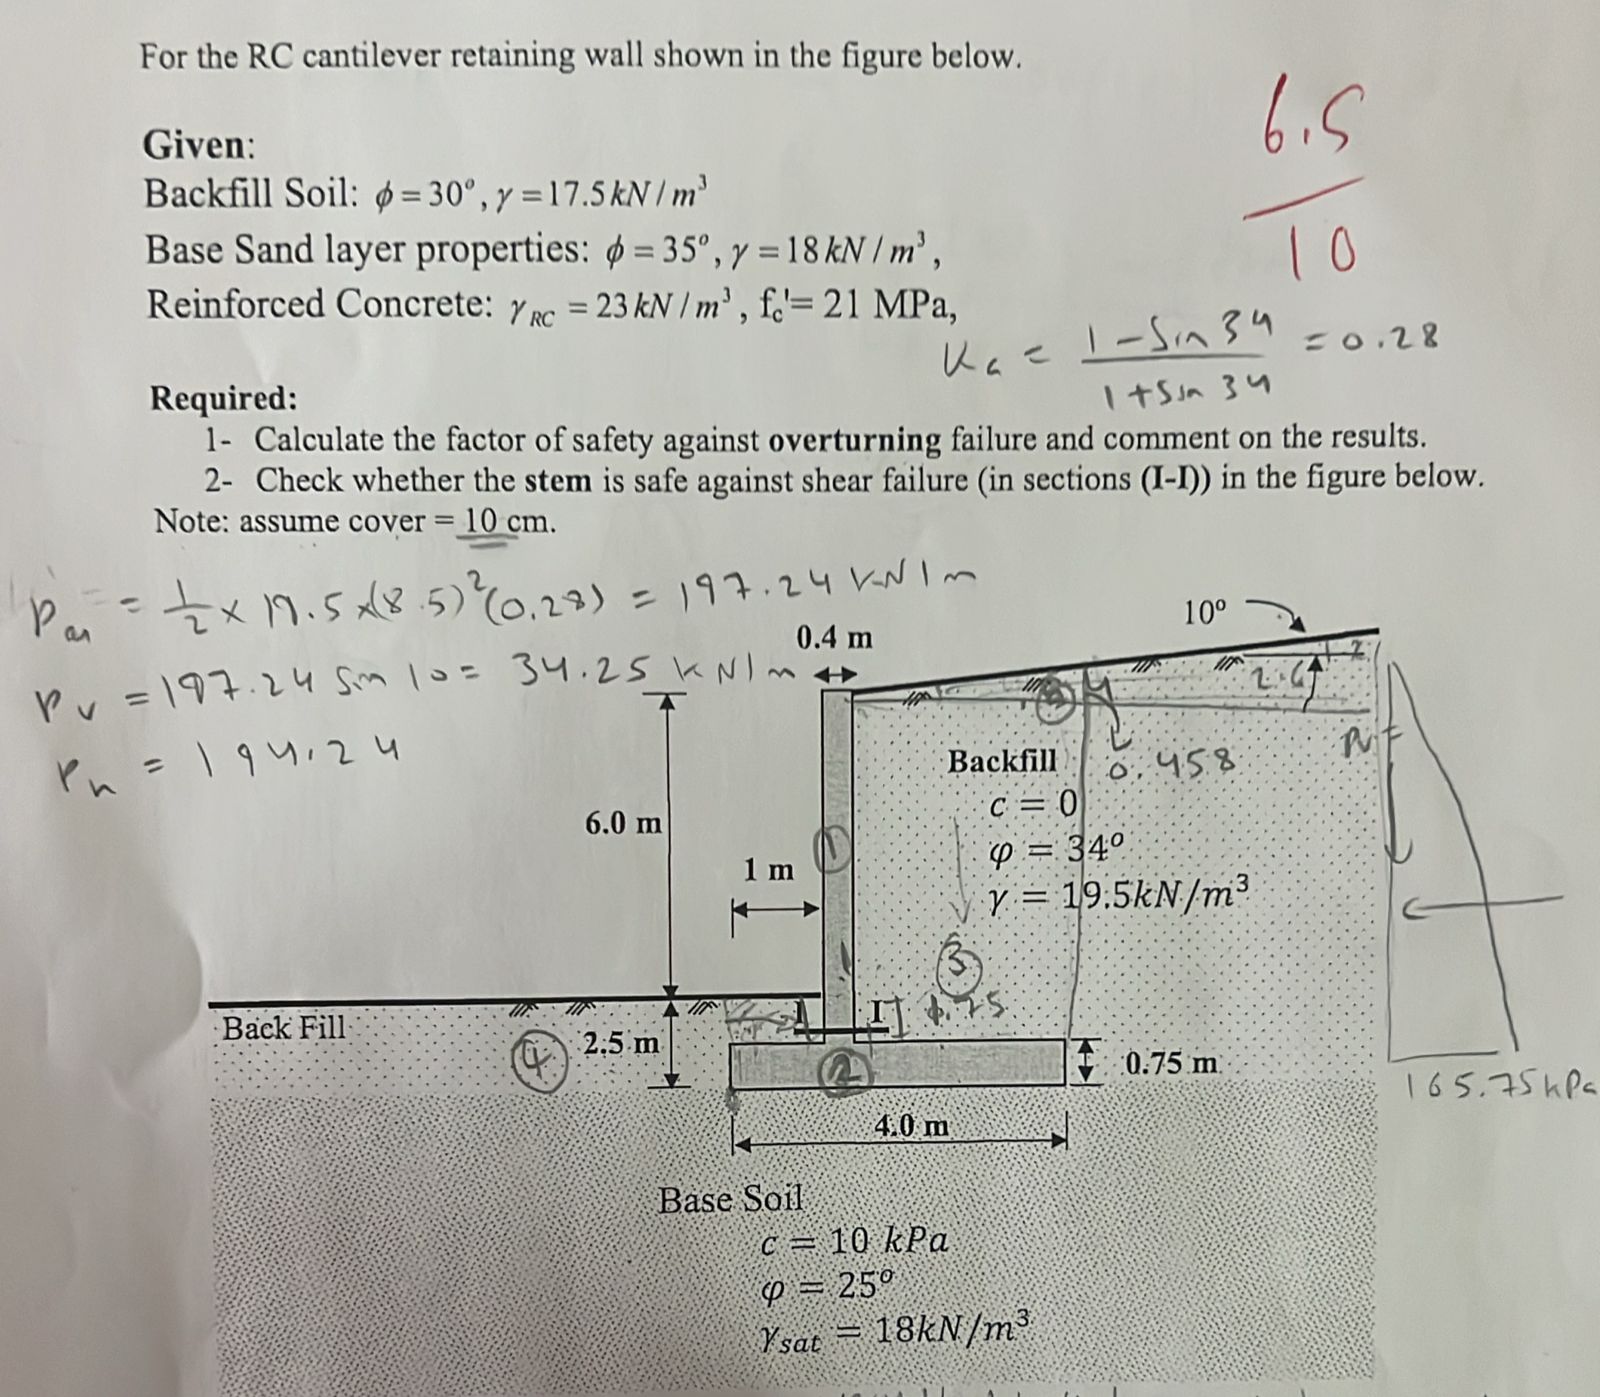 For the RC cantilever retaining wall shown in the figure below.
6.5
10
Given:
Backfill Soil: ϕ = 30°, γ = 17.5 kN / m³
Base Sand layer properties: ϕ = 35°, γ = 18 kN / m³,
Reinforced Concrete: γ RC = 23 kN / m³, fc'= 21 MPa,
Ka = 1 - Sin 34 / 1 + Sin 34 = 0.28
Required:
1- Calculate the factor of safety against overturning failure and comment on the results.
2- Check whether the stem is safe against shear failure (in sections (I-I)) in the figure below.
Note: assume cover = 10 cm.
= 1/2 × 19.5 × (8.5)² (0.28) = 197.24 kN/m
Pv = 197.24 Sin 10 = 34.25 kN/m
Ph = 194.24
0.4 m
10°
2.6
0.458
Pv =
6.0 m
1 m
1
Backfill
c = 0
φ = 34°
γ = 19.5kN/m³
3
Back Fill
4
2.5 m
I
I
2
0.75 m
165.75 kPa
4.0 m
Base Soil
c = 10 kPa
φ = 25°
γsat = 18kN/m³